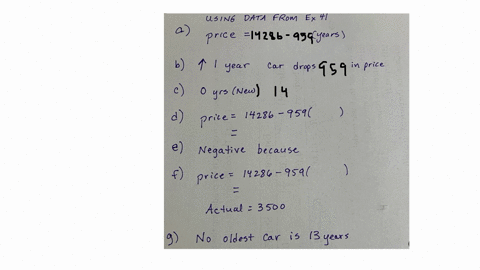 USING DATA FROM Ex 41
a) price = 14286 - 959 (years)
b) ↑ 1 year car drops 959 in price
c) 0 yrs (New) 14
d) price = 14286 - 959( )
=
e) Negative because
f) price = 14286 - 959( )
=
Actual = 3500
g) No oldest car is 13 years